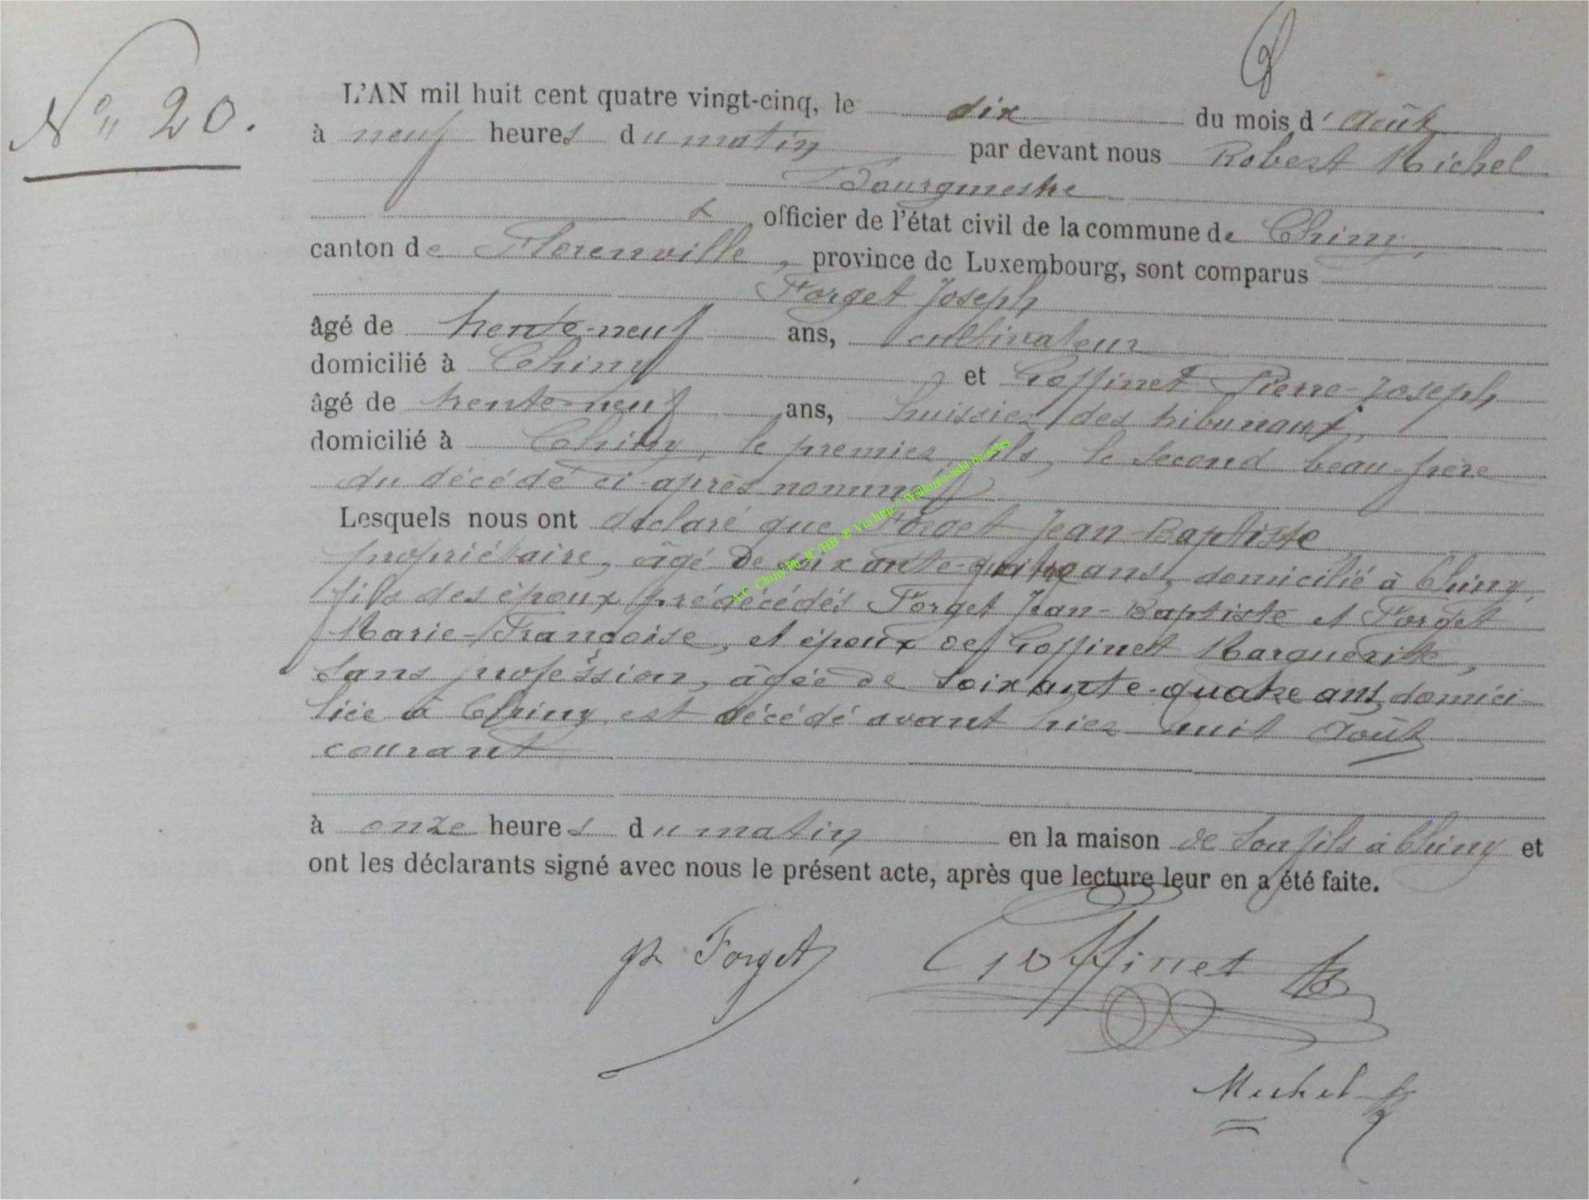 N° 20.
D
L'AN mil huit cent quatre vingt-cinq, le dix du mois d'Août
à neuf heures du matin par devant nous Robert Michel
Bourgmestre
officier de l'état civil de la commune de Chiny,
canton de Florenville, province de Luxembourg, sont comparus
Forget Joseph
âgé de trente-neuf ans, cultivateur
domicilié à Chiny et Goffinet Pierre-Joseph
âgé de trente-neuf ans, huissier des tribunaux,
domicilié à Chiny, le premier fils, le second beau-frère
du décédé ci-après nommé
Lesquels nous ont déclaré que Forget Jean-Baptiste
propriétaire, âgé de soixante-quatre ans, domicilié à Chiny,
fils des époux prédécédés Forget Jean-Baptiste et Forget
Marie-Françoise, et époux de Goffinet Marguerite,
sans profession, âgée de soixante-quatre ans, domici-
liée à Chiny est décédé avant hier huit Août
courant
à onze heures du matin en la maison de son fils à Chiny et
ont les déclarants signé avec nous le présent acte, après que lecture leur en a été faite.
Forget Goffinet
Michel